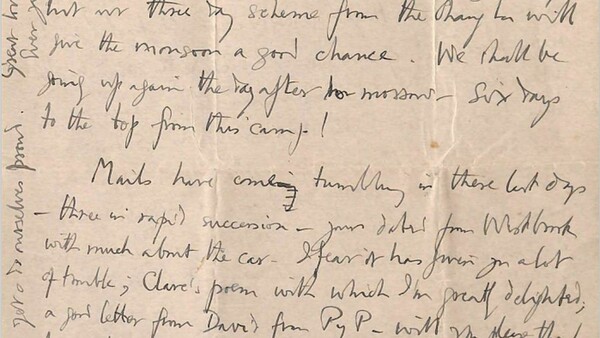 but our three day scheme from the Chang La will
give the monsoon a good chance. We shall be
going up again the day after to morrow – Six days
to the top from this camp!
Mails have come tumbling in these last days
– three in rapid succession – yours dated from Westbrook
with much about the car – I fear it has given you a lot
of trouble; Clare's poem with which I'm greatly delighted;
a good letter from David from PyP – will you please thank
get & do ourselves proud. Great love